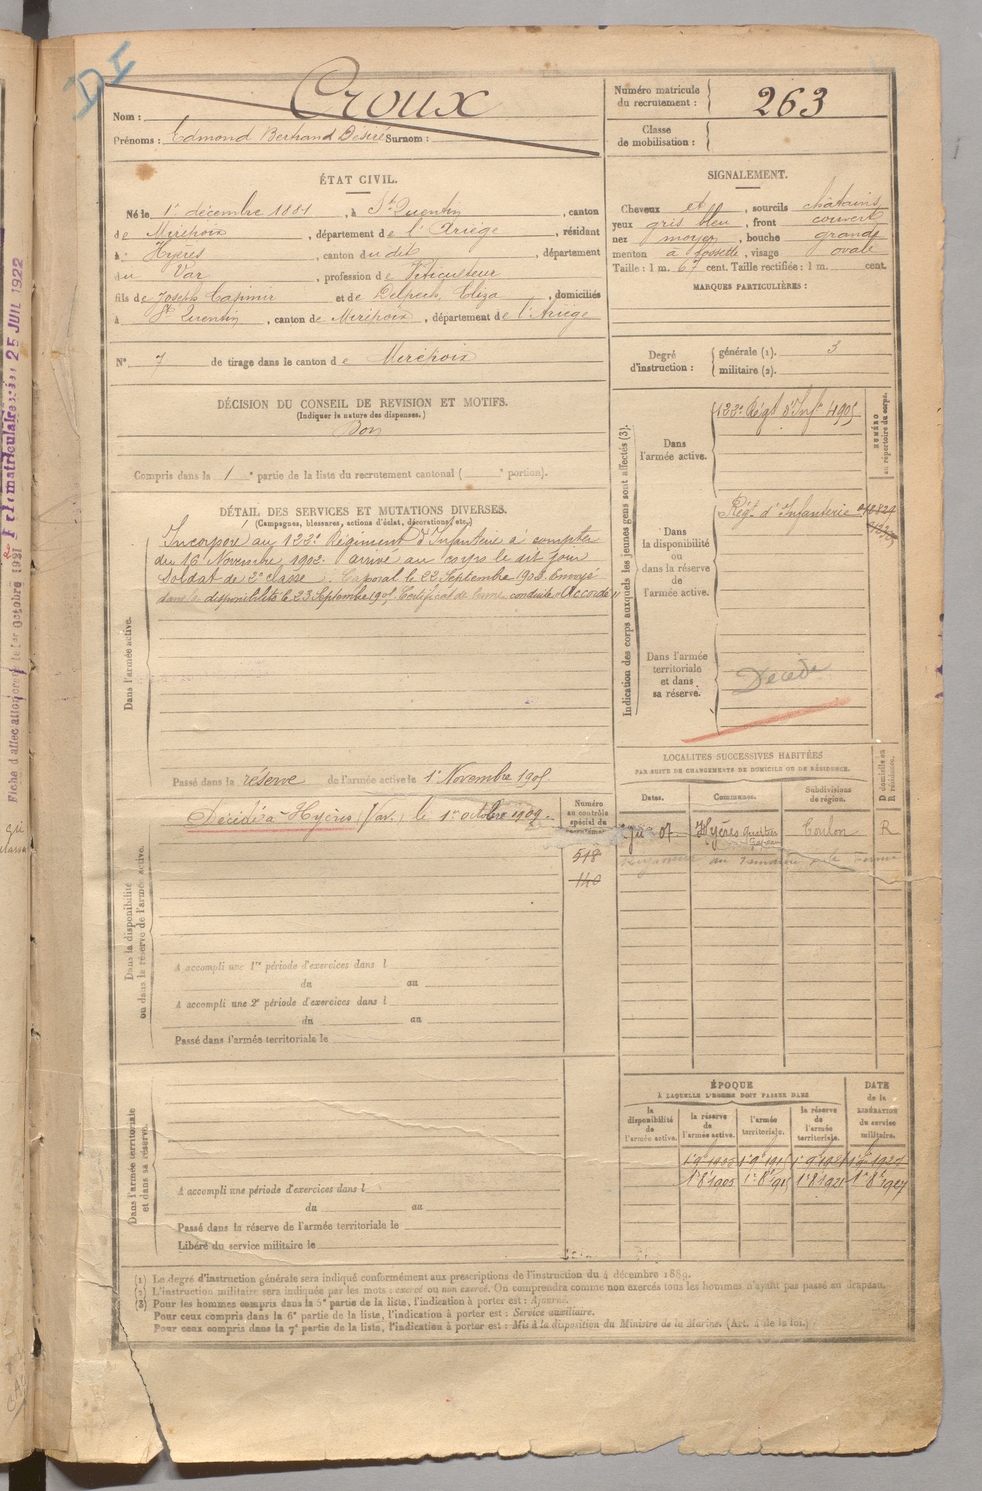 DI
Nom : Croux
Prénoms : Edmond Bertrand Desiré Surnom :
Numéro matricule
du recrutement : 263
Classe
de mobilisation :
ÉTAT CIVIL.
Né le 1er décembre 1881, à St Quentin, canton
de Mirepoix, département de l'Ariège, résidant
à Hyères, canton du dit, département
du Var, profession de Viticulteur
fils de Joseph Casimir et de Delpech, Eliza, domiciliés
à St Quentin, canton de Mirepoix, département de l'Ariège
N° 7 de tirage dans le canton de Mirepoix
SIGNALEMENT.
Cheveux et, sourcils chatains
yeux gris bleu, front couvert
nez moyen, bouche grande
menton à fossette, visage ovale
Taille : 1 m. 67 cent. Taille rectifiée : 1 m. cent.
MARQUES PARTICULIÈRES :
Degré
d'instruction :
générale (1). 3
militaire (2).
DÉCISION DU CONSEIL DE REVISION ET MOTIFS.
(Indiquer la nature des dispenses.)
Bon
Compris dans la 1e partie de la liste du recrutement cantonal ( e portion).
DÉTAIL DES SERVICES ET MUTATIONS DIVERSES.
(Campagnes, blessures, actions d'éclat, décorations, etc.)
Dans l'armée active.
Incorporé au 122e Régiment d'Infanterie à compter
du 16 Novembre 1902. arrivé au corps le dit jour
Soldat de 2e classe. Caporal le 22 Septembre 1903. Envoyé
dans la disponibilité le 23 Septembre 1905. Certificat de bonne conduite "Accordé"
Passé dans la réserve de l'armée active le 1er Novembre 1905
Indication des corps auxquels les jeunes gens sont affectés (3).
NUMÉRO
au répertoire du corps.
Dans
l'armée active.
122e Régt d'Infie 4905
Dans
la disponibilité
ou
dans la réserve
de
l'armée active.
Régt d'Infanterie
Dans l'armée
territoriale
et dans
sa réserve.
Décédé
LOCALITÉS SUCCESSIVES HABITÉES
PAR SUITE DE CHANGEMENTS DE DOMICILE OU DE RÉSIDENCE.
Dates.
Communes.
Subdivisions
de région.
D domicile ou
R résidence.
07. Hyères Toulon R
Dans la disponibilité
ou dans la réserve de l'armée active.
Décédé à Hyères (Var.) le 1er octobre 1909.
Numéro
au contrôle
spécial du
recrutement
518
140
A accompli une 1re période d'exercices dans l
du au
A accompli une 2e période d'exercices dans l
du au
Passé dans l'armée territoriale le
Dans l'armée territoriale
et dans sa réserve.
A accompli une période d'exercices dans l
du au
Passé dans la réserve de l'armée territoriale le
Libéré du service militaire le
ÉPOQUE
À LAQUELLE L'HOMME DOIT PASSER DANS
la
disponibilité
de
l'armée active.
la réserve
de
l'armée active.
l'armée
territoriale.
la réserve
de
l'armée
territoriale.
DATE
de la
LIBÉRATION
du service
militaire.
(1) Le degré d'instruction générale sera indiqué conformément aux prescriptions de l'instruction du 4 décembre 1889.
(2) L'instruction militaire sera indiquée par les mots : exercé ou non exercé. On comprendra comme non exercés tous les hommes n'ayant pas passé au drapeau.
(3) Pour les hommes compris dans la 5e partie de la liste, l'indication à porter est : Ajourné.
Pour ceux compris dans la 6e partie de la liste, l'indication à porter est : Service auxiliaire.
Pour ceux compris dans la 7e partie de la liste, l'indication à porter est : Mis à la disposition du Ministre de la Marine. (Art. 4 de la loi.)